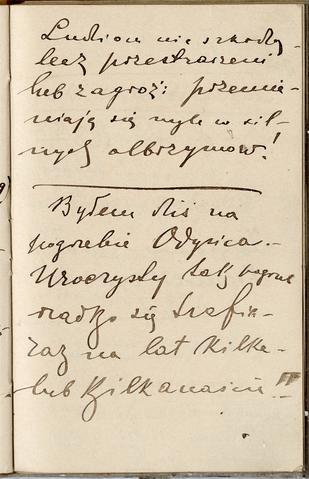 Ludziom nie szkodzą,
lecz przestraszeni
lub zagroż: przemie-
niają się w sil-
nych olbrzymów!
Byłem dziś na
pogrzebie Odysica.-
Uroczysty tak pogrzeb
rzadko się trafia-
raz na lat kilka-
lub kilkanaście!!"